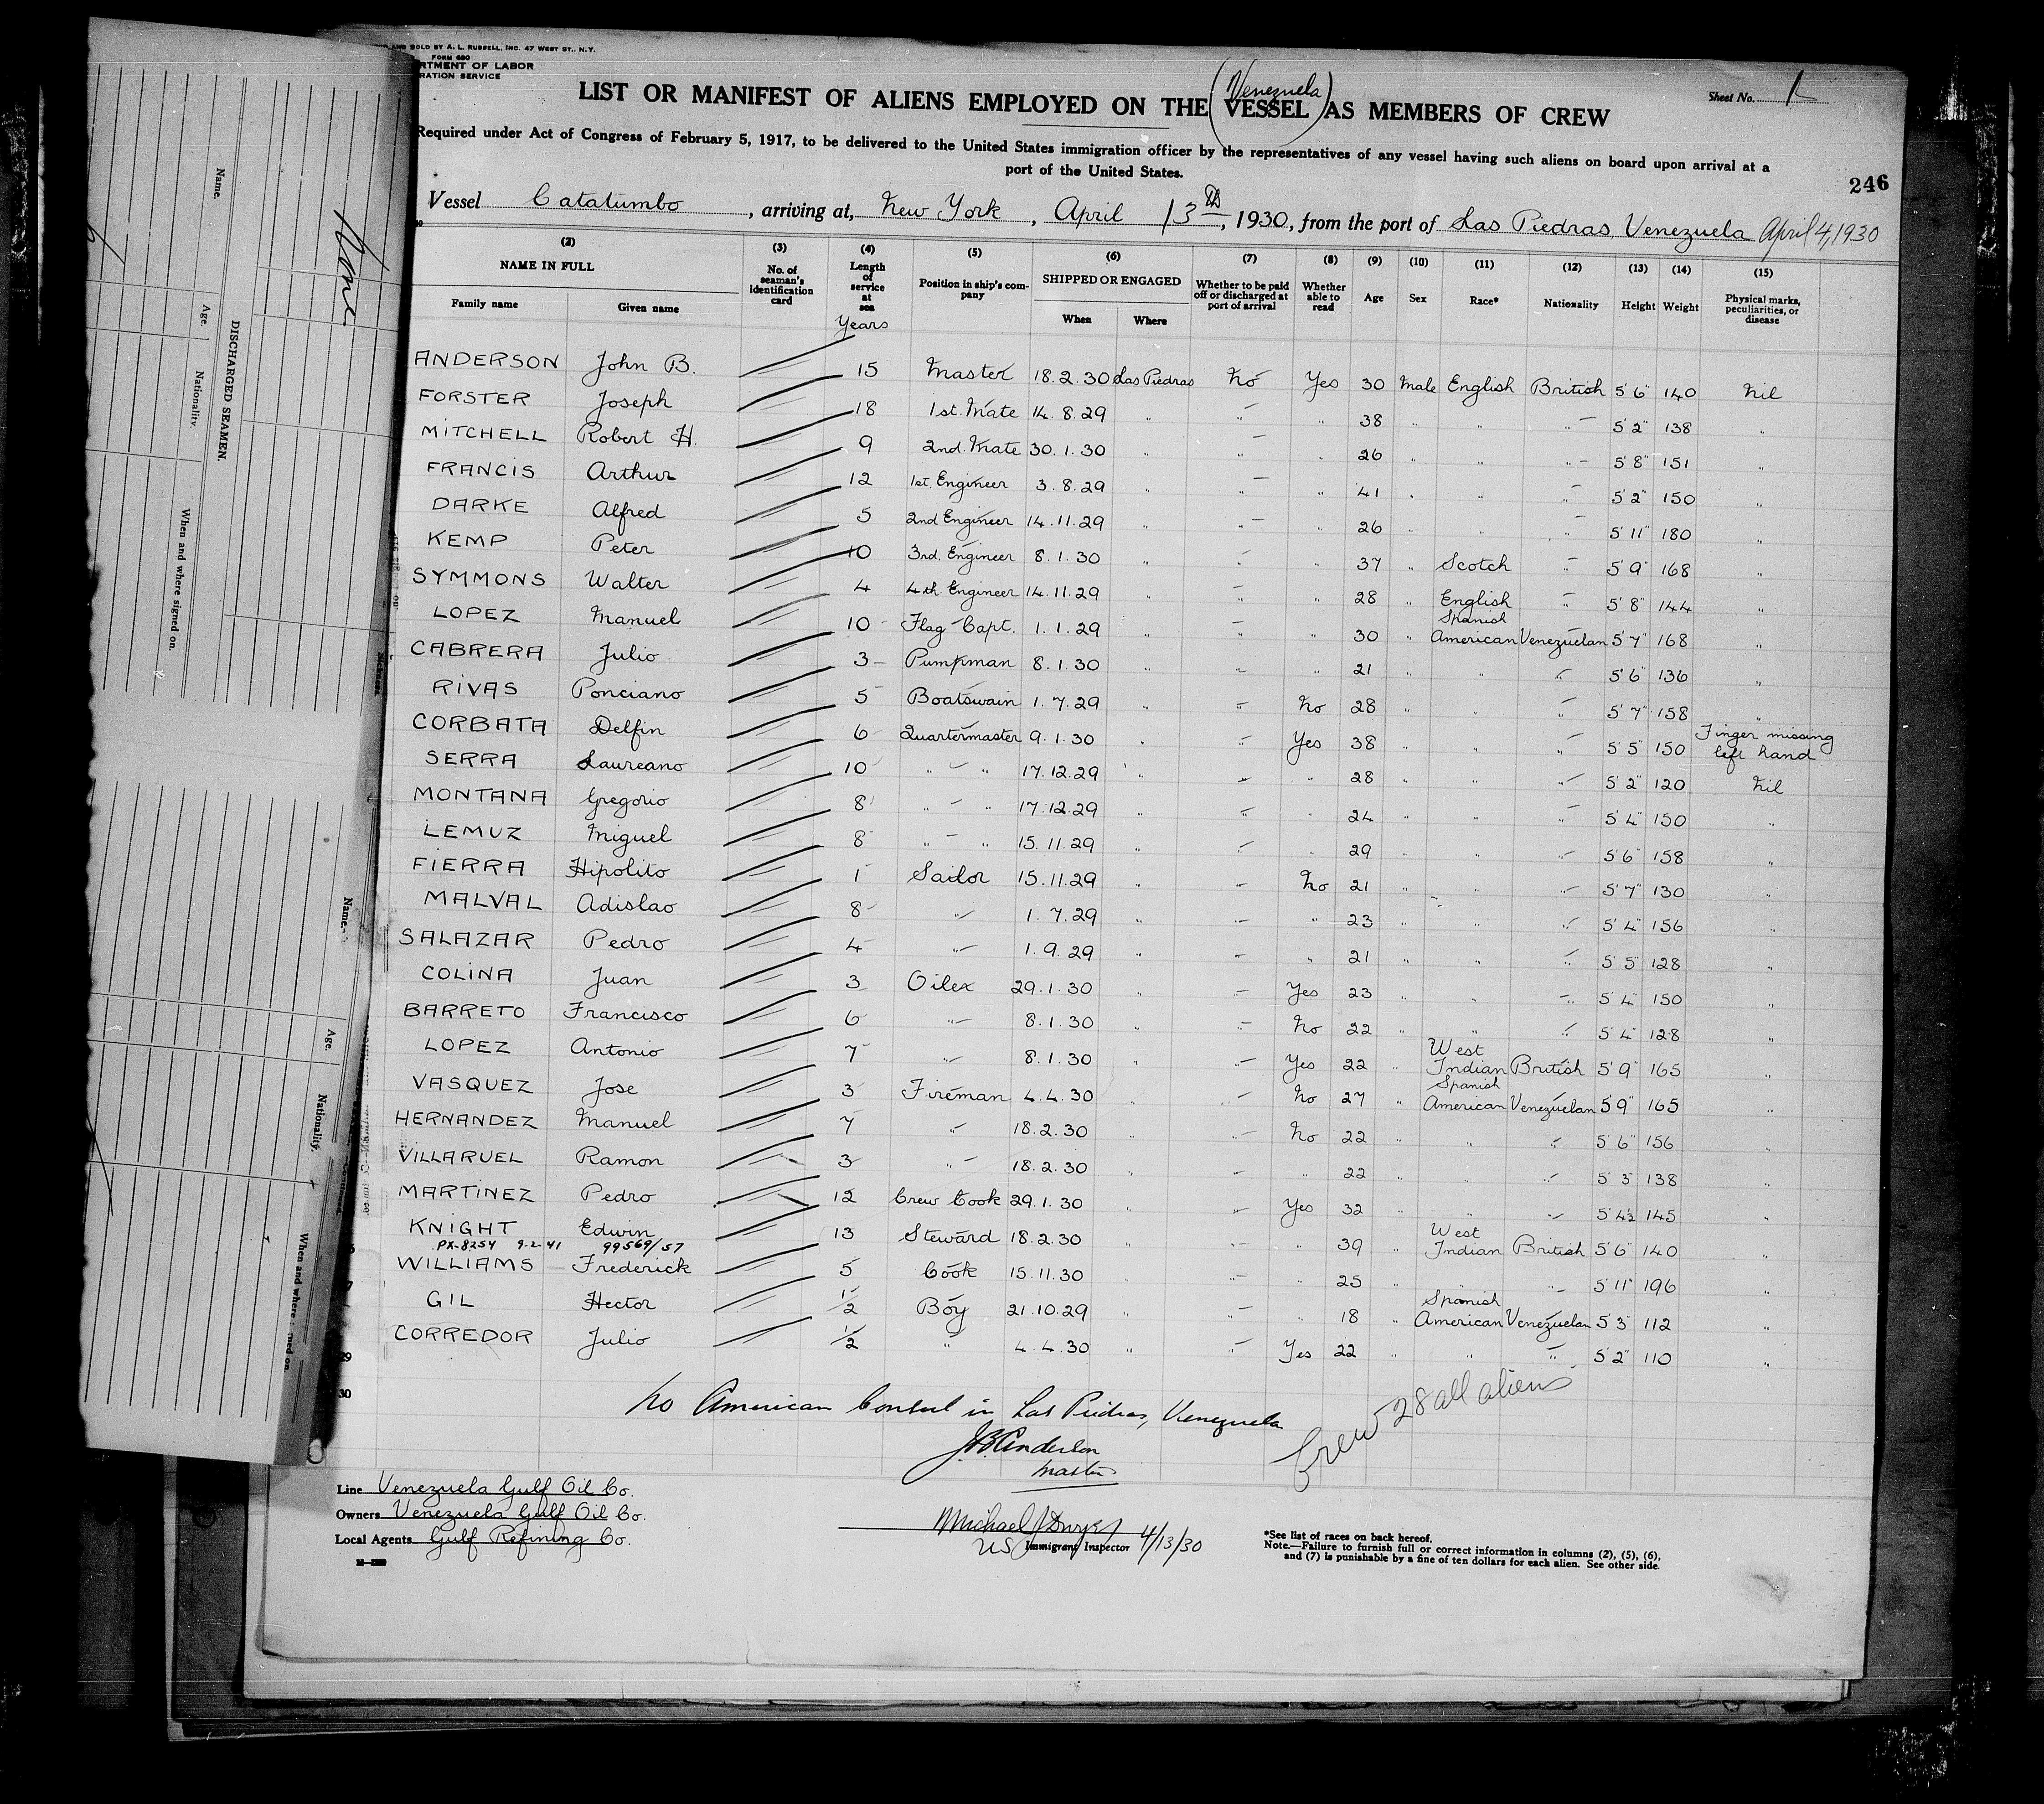 AND SOLD BY A. L. RUSSELL, INC. 47 WEST ST., N.Y.
FORM 680
RTMENT OF LABOR
RATION SERVICE
Sheet No. 1
(Venezuela)
LIST OR MANIFEST OF ALIENS EMPLOYED ON THE VESSEL AS MEMBERS OF CREW
Required under Act of Congress of February 5, 1917, to be delivered to the United States immigration officer by the representatives of any vessel having such aliens on board upon arrival at a
port of the United States.
246
Vessel Catatumbo, arriving at, New York, April 13th, 1930, from the port of Las Piedras, Venezuela April 4, 1930
(2) (3) (4) (5) (6) (7) (8) (9) (10) (11) (12) (13) (14) (15)
NAME IN FULL
Family name Given name
No. of seaman's identification card
Length of service at sea
Years
Position in ship's company
SHIPPED OR ENGAGED
When Where
Whether to be paid off or discharged at port of arrival
Whether able to read
Age Sex Race* Nationality Height Weight
Physical marks, peculiarities, or disease
ANDERSON John B. 15 Master 18.2.30 Las Piedras No Yes 30 Male English British 5'6" 140 Nil
FORSTER Joseph 18 1st. Mate 14.8.29 " " " 38 " " " 5'2" 138 "
MITCHELL Robert H. 9 2nd. Mate 30.1.30 " " " 26 " " " 5'8" 151 "
FRANCIS Arthur 12 1st. Engineer 3.8.29 " " " 41 " " " 5'2" 150 "
DARKE Alfred 5 2nd Engineer 14.11.29 " " " 26 " " " 5'11" 180 "
KEMP Peter 10 3rd. Engineer 8.1.30 " " " 37 " Scotch " 5'9" 168 "
SYMMONS Walter 4 4th. Engineer 14.11.29 " " " 28 " English " 5'8" 144 "
LOPEZ Manuel 10 Flag Capt. 1.1.29 " " " 30 " Spanish American Venezuelan 5'7" 168 "
CABRERA Julio 3 Pumpman 8.1.30 " " " 21 " " " 5'6" 136 "
RIVAS Ponciano 5 Boatswain 1.7.29 " " No 28 " " " 5'7" 158 "
CORBATA Delfin 6 Quartermaster 9.1.30 " " Yes 38 " " " 5'5" 150 Finger missing left hand
SERRA Laureano 10 " " 17.12.29 " " " 28 " " " 5'2" 120 Nil
MONTANA Gregorio 8 " " 17.12.29 " " " 24 " " " 5'4" 150 "
LEMUZ Miguel 8 " " 15.11.29 " " " 29 " " " 5'6" 158 "
FIERRA Hipolito 1 Sailor 15.11.29 " " No 21 " " " 5'7" 130 "
MALVAL Adislao 8 " 1.7.29 " " " 23 " " " 5'4" 156 "
SALAZAR Pedro 4 " 1.9.29 " " " 21 " " " 5'5" 128 "
COLINA Juan 3 Oiler 29.1.30 " " Yes 23 " " " 5'4" 150 "
BARRETO Francisco 6 " 8.1.30 " " No 22 " " " 5'4" 128 "
LOPEZ Antonio 7 " 8.1.30 " " Yes 22 " West Indian British 5'9" 165 "
VASQUEZ Jose 3 Fireman 4.4.30 " " No 27 " Spanish American Venezuelan 5'9" 165 "
HERNANDEZ Manuel 7 " 18.2.30 " " No 22 " " " 5'6" 156 "
VILLARUEL Ramon 3 " 18.2.30 " " " 22 " " " 5'3" 138 "
MARTINEZ Pedro 12 Crew Cook 29.1.30 " " Yes 32 " " " 5'4½ 145 "
KNIGHT Edwin 13 Steward 18.2.30 " " " 39 " West Indian British 5'6" 140 "
PX-8254 9-2-41 99569/57
WILLIAMS Frederick 5 Cook 15.11.30 " " " 25 " " " 5'11" 196 "
GIL Hector 1/2 Boy 21.10.29 " " " 18 " Spanish American Venezuelan 5'3" 112 "
CORREDOR Julio 1/2 " 4.4.30 " " Yes 22 " " " 5'2" 110 "
29
30
No American Consul in Las Piedras, Venezuela
J.B. Anderson
Master
Crew 28 all aliens
Line Venezuela Gulf Oil Co.
Owners Venezuela Gulf Oil Co.
Local Agents Gulf Refining Co.
Michael J Dwyer 4/13/30
US Immigrant Inspector
*See list of races on back hereof.
Note.—Failure to furnish full or correct information in columns (2), (5), (6),
and (7) is punishable by a fine of ten dollars for each alien. See other side.
DISCHARGED SEAMEN.
Name. Age. Nationality. When and where signed on.
None
Name. Age. Nationality. When and where signed on.